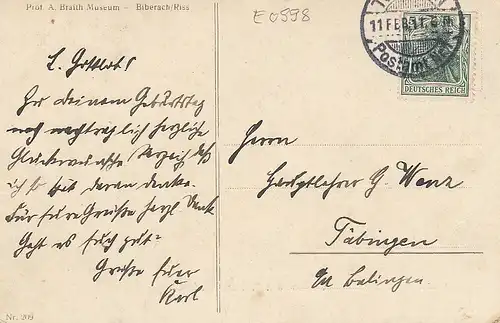 Prof. A. Braith Museum - Biberach/Riss
E 0598
11 FEB 11
Postamt
DEUTSCHES REICH
L. Gottlob!
Zu deinem Geburtstag
noch nachträglich herzliche
Glückwünsche Verzeih daß
ich so spät daran denke.
Für Eure Grüße herzl Dank
Geht es Euch gut?
Grüße Euer
Karl
Herrn
Hauptlehrer G. Wenz
Täbingen
bei Balingen
Nr. 209